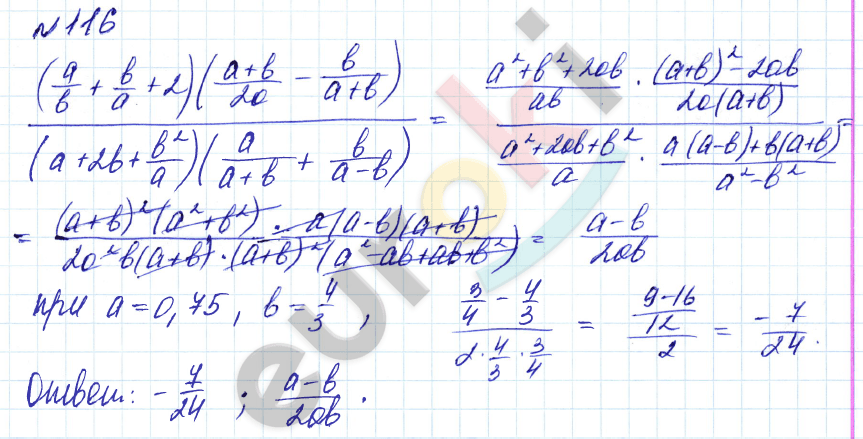 №116
((a/b + b/a + 2)((a+b)/2a − b/(a+b))) / ((a+2b+b²/a)(a/(a+b) + b/(a−b))) = ((a²+b²+2ab)/ab · ((a+b)²−2ab)/(2a(a+b))) / ((a²+2ab+b²)/a · (a(a−b)+b(a+b))/(a²−b²)) =
= ((a+b)²(a²+b²) · a(a−b)(a+b)) / (2a²b(a+b)·(a+b)²(a²−ab+ab+b²)) = (a−b)/2ab
при a=0,75, b=4/3, (3/4 − 4/3) / (2·4/3·3/4) = ((9−16)/12)/2 = −7/24.
Ответ: −7/24 ; (a−b)/2ab.
euroki